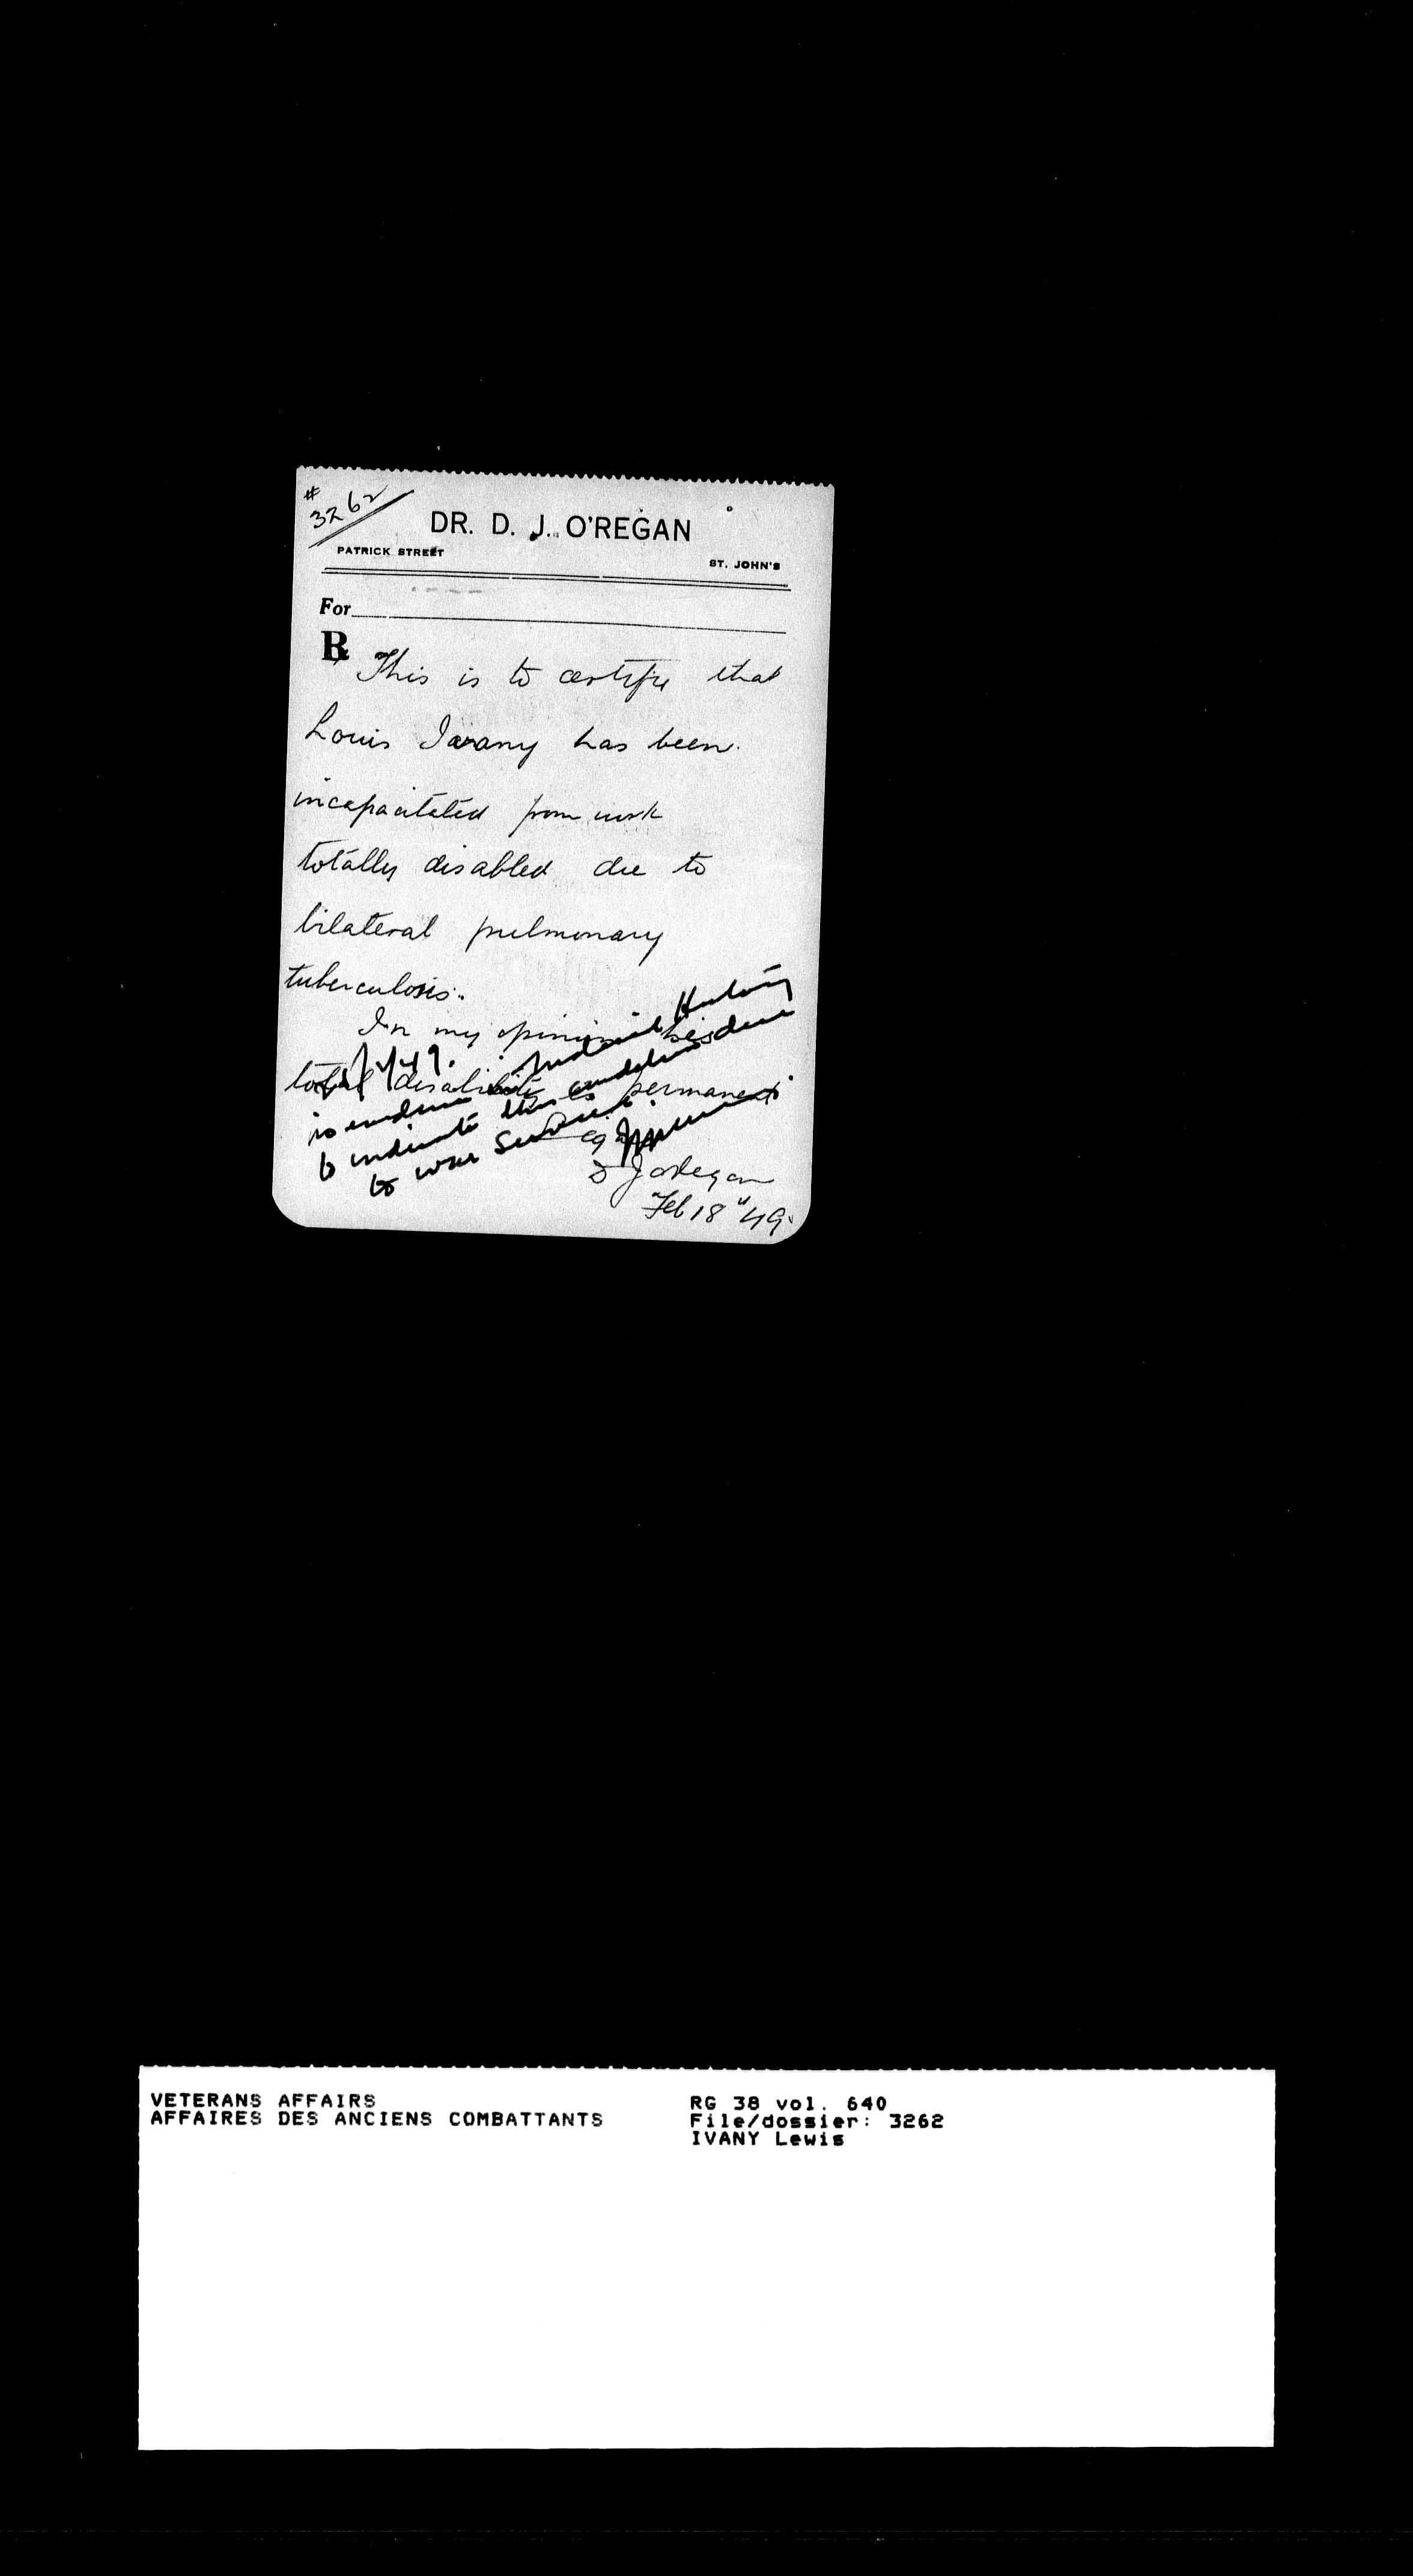 # 3262
DR. D. J. O'REGAN
PATRICK STREET
ST. JOHN'S
For
℞ This is to certify that
Louis Ivany has been
incapacitated from work
totally disabled due to
bilateral pulmonary
tuberculosis.
In my opinion his
total disability is permanent
History
to indicate this is due
to war Service.
D J O'Regan
Feb 18" 49.
VETERANS AFFAIRS
AFFAIRES DES ANCIENS COMBATTANTS
RG 38 vol. 640
File/dossier: 3262
IVANY Lewis